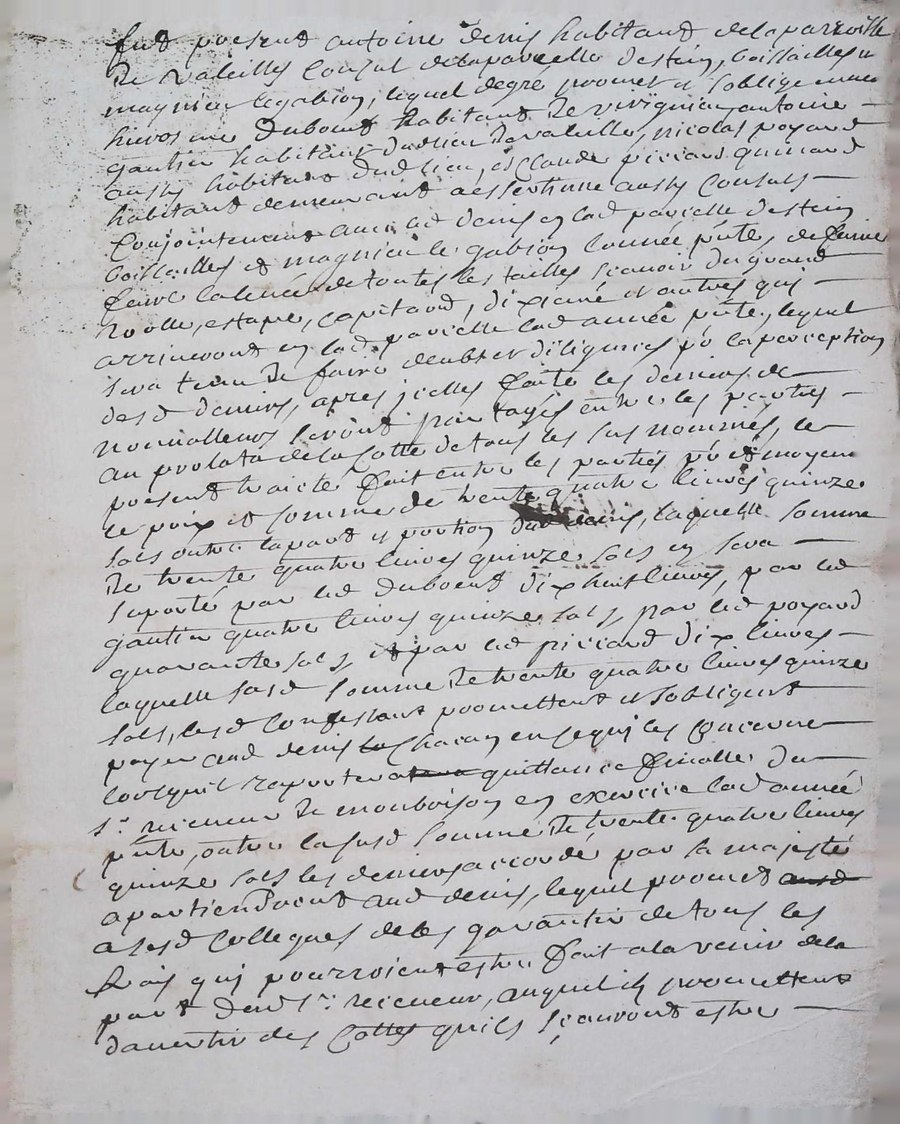 fut present antoine denis habitand de la parroisse
de valeille consul de la parcelle destein, boisailles et
magnieu legabion, lequel degré promet et soblige envers
hierosme duboeuf habitant de virignieu, antoine
gautier habitant dudlieu de valeille, nicolas poyard
aussy habitant dudlieu, et Claude piccard quinard
habitant demeurant a essertinne aussy Consuls
Conjointement avec led denis en lad parcelle destein
boisailles et magnieu le gabion lannée pnte, de faire
faire la levée de toutes les tailles scavoir du grand
Roolle, estape, capitaōn, dixiemé et autres qui
arriveront en lad parcelle lad année pnte, lequel
sera tenu de faire doubles diligences pr la perception
desd deniers, apres jcelles faite les deniers de
nonvalleurs seront partagés entre les parties
au prolata de la Cotte de tous les sus nommés, le
present traicté fait entre les parties pr et moyen
le prix et somme de trente quatre livres quinze
sols outre la part et portion dud denis, laquelle somme
de trente quatre livres quinze sols en sera
suporté par led duboeuf dix huit livres, par led
gautier quatre livres quinze sols, par led poyard
quarante sols, et par led piccard dix livres
laquelle susd somme de trente quatre livres quinze
sols, lesd Confessant promettent et sobligent
payer aud denis Chacun en se qui les concerne
lorsquil raportera quittance finalle du
sr receveur de monboison en exercice lad année
pnte, outre la susd somme de trente quatre livres
quinze sols les deniers accordé par sa majesté
apartiendront aud denis, lequel promet
a sesd Collegues de les garantir de tous les
frais qui pourroient estre fait a la venir de la
part dud sr receveur, auquel ils promettent
davertir des Cottes quils scauront estre